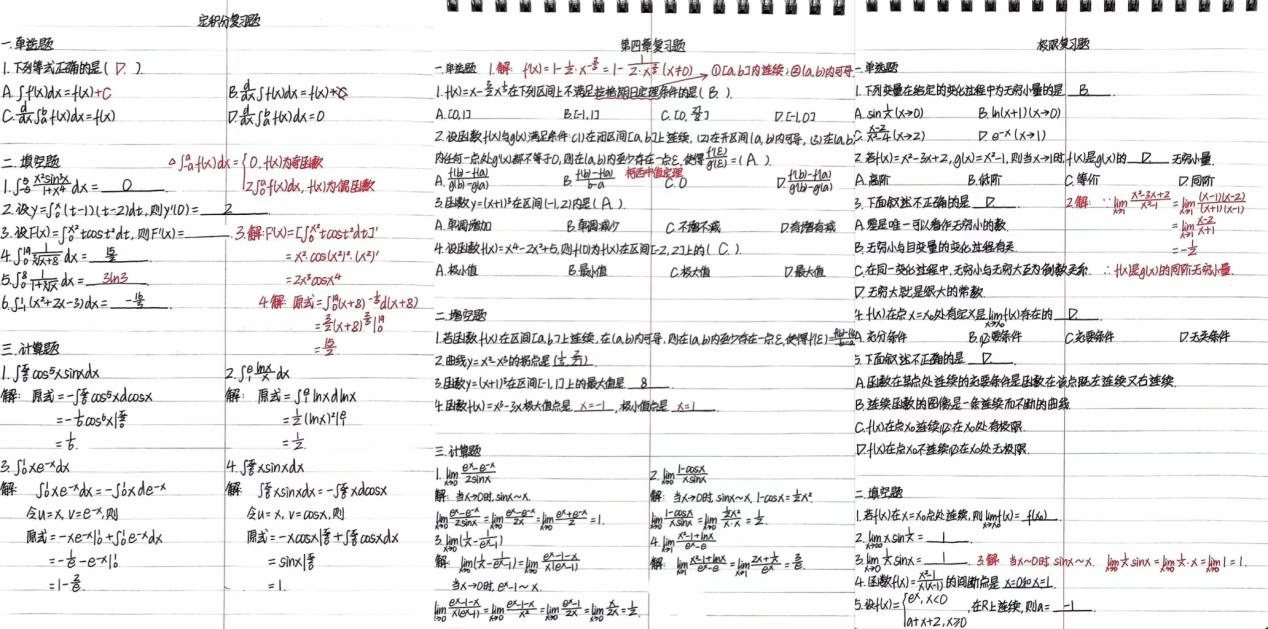 定积分复习题
一.单选题
1.下列等式正确的是( D. ).
A.∫f(x)dx=f(x)+C
B.d/dx∫f(x)dx=f(x)+C
C.d/dx∫ᵇₐf(x)dx=f(x)
D.d/dx∫ᵇₐf(x)dx=0
二.填空题
△∫ᵃ₋ₐf(x)dx={0, f(x)为奇函数
2∫ᵃ₀f(x)dx, f(x)为偶函数
1.∫⁵₋₅ x²sin³x/(1+x⁴) dx = 0
2.设y=∫ˣ₀(t-1)(t-2)dt,则y'(0)= 2
3.设F(x)=∫₀^(x²) tcost²dt,则F'(x)=
3.解:F'(x)=[∫₀^(x²) tcost²dt]'
=x²·cos(x²)²·(x²)'
=2x³cosx⁴
4.∫₀¹⁹ 1/∛(x+8) dx = 15/2
5.∫₀⁸ 1/(1+∛x) dx = 3ln3
6.∫₋₁¹(x²+2x-3)dx= -16/3
4.解 原式=∫₀¹⁹(x+8)^(-1/3)d(x+8)
=3/2(x+8)^(2/3)|₀¹⁹
=15/2
三.计算题
1.∫₀^(π/2) cos⁵xsinxdx
解: 原式=-∫₀^(π/2) cos⁵xdcosx
=-1/6cos⁶x|₀^(π/2)
=1/6.
2.∫₁ᵉ lnx/x dx
解: 原式=∫₁ᵉ lnxdlnx
=1/2(lnx)²|₁ᵉ
=1/2.
3.∫₀¹xe⁻ˣdx
解: ∫₀¹xe⁻ˣdx=-∫₀¹xde⁻ˣ
令u=x, v=e⁻ˣ,则
原式=-xe⁻ˣ|₀¹+∫₀¹e⁻ˣdx
=-1/e-e⁻ˣ|₀¹
=1-2/e.
4.∫₀^(π/2) xsinxdx
解: ∫₀^(π/2) xsinxdx=-∫₀^(π/2) xdcosx
令u=x, v=cosx,则
原式=-xcosx|₀^(π/2)+∫₀^(π/2) cosxdx
=sinx|₀^(π/2)
=1.
第四章复习题
一.单选题 1.解: f'(x)=1-1/2·x^(-2/3)=1-1/(2·x^(2/3)) (x≠0) →①[a,b]内连续;②(a,b)内可导
1.f(x)=x-3/2x^(1/3)在下列区间上不满足拉格朗日定理条件的是( B ).
A.[0,1] B.[-1,1] C.[0, D.[-1,0]
2.设函数f(x)与g(x)满足条件:(1)在闭区间[a,b]上连续, (2)在开区间(a,b)内可导, (3)在(a,b)
内任何一点处g'(x)都不等于0,则在(a,b)内至少存在一点ξ,使得f'(ξ)/g'(ξ)=( A ).
柯西中值定理
A.(f(b)-f(a))/(g(b)-g(a)) B.(f(b)-f(a))/(b-a) C.0 D.(f(b)-f(a))/(g(b)-g(a))
3.函数y=(x+1)³在区间(-1,2)内是( A ).
A.单调增加 B.单调减少 C.不增不减 D.有增有减
4.设函数f(x)=x⁴-2x²+5,则f(0)为f(x)在区间[-2,2]上的( C ).
A.极小值 B.最小值 C.极大值 D.最大值
二.填空题
1.若函数f(x)在区间[a,b]上连续,在(a,b)内可导,则在(a,b)内至少存在一点ξ,使得f'(ξ)=(f(b)-f(a))/(b-a)
2.曲线y=x²-x³的拐点是(1/3,2/27).
3.函数y=(x+1)³在区间[-1,1]上的最大值是 8
4.函数f(x)=x³-3x极大值点是 x=-1 ,极小值点是 x=1 .
三.计算题
1.lim(x→0) (eˣ-e⁻ˣ)/2sinx
解: 当x→0时,sinx~x.
lim(x→0) (eˣ-e⁻ˣ)/2sinx=lim(x→0) (eˣ-e⁻ˣ)/2x=lim(x→0) (eˣ+e⁻ˣ)/2=1.
2.lim(x→0) (1-cosx)/xsinx
解: 当x→0时,sinx~x, 1-cosx=1/2x².
lim(x→0) (1-cosx)/xsinx=lim(x→0) (1/2x²)/(x·x)=1/2.
3.lim(x→0)(1/x-1/(eˣ-1))
解: lim(x→0)(1/x-1/(eˣ-1))=lim(x→0) (eˣ-1-x)/(x(eˣ-1))
当x→0时,eˣ-1~x.
lim(x→0) (eˣ-1-x)/(x(eˣ-1))=lim(x→0) (eˣ-1-x)/x²=lim(x→0) (eˣ-1)/2x=lim(x→0) x/2x=1/2.
4.lim(x→1) (x²-1+lnx)/(eˣ-e)
解: lim(x→1) (x²-1+lnx)/(eˣ-e)=lim(x→1) (2x+1/x)/eˣ=3/e.
极限复习题
一.单选题
1.下列变量在给定的变化过程中为无穷小量的是 B .
A.sin1/x(x→0) B.ln(x+1)(x→0)
C.(x-2)/(x²-4)(x→2) D.e⁻ˣ(x→1)
2.若f(x)=x²-3x+2,g(x)=x²-1,则当x→1时f(x)是g(x)的 D 无穷小量.
A.高阶 B.低阶 C.等价 D.同阶
3.下面叙述不正确的是 D .
2.解: ∵lim(x→1) (x²-3x+2)/(x²-1)=lim(x→1) (x-1)(x-2)/(x+1)(x-1)
=lim(x→1) (x-2)/(x+1)
=-1/2
∴f(x)是g(x)的同阶无穷小量.
A.零是唯一可以看作无穷小的数
B.无穷小与自变量的变化过程有关
C.在同一变化过程中,无穷小与无穷大互为倒数关系
D.无穷大就是很大的常数
4.f(x)在点x=x₀处有定义是lim(x→x₀)f(x)存在的 D .
A.充分条件 B.必要条件 C.充要条件 D.无关条件
5.下面叙述不正确的是 D .
A.函数在某点处连续的充要条件是函数在该点既左连续又右连续
B.连续函数的图像是一条连续而不断的曲线
C.f(x)在点x₀连续必在x₀处有极限.
D.f(x)在点x₀不连续必在x₀处无极限.
二.填空题
1.若f(x)在x=x₀点处连续,则lim(x→x₀)f(x)= f(x₀)
2.lim(x→∞)xsin1/x= 1 .
3.lim(x→0)1/x sinx= 1 . 3.解 当x→0时 sinx~x. lim(x→0)1/x sinx=lim(x→0)1/x·x=lim(x→0)1=1.
4.函数f(x)=(x²-1)/(x(x-1))的间断点是 x=0和x=1.
5.设f(x)={eˣ, x<0
a+x+2, x≥0
,在R上连续,则a= -1 .